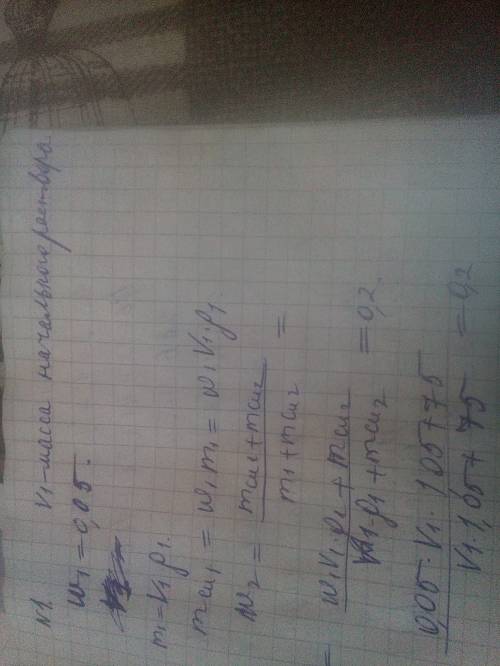 №1. V1 - масса начального раствора.
w1 = 0,05.
m1 = V1 ρ1.
mсм1 = w1 m1 = w1 V1 · ρ1.
w2 = (mсм1 + mсм2) / (m1 + mсм2) =
= (w1 V1 · ρ1 + mсм2) / (V1 · ρ1 + mсм2) = 0,2.
(0,05 · V1 · 1,05 + 75) / (V1 · 1,05 + 75) = 0,2